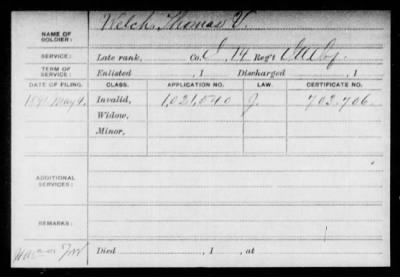 NAME OF SOLDIER: Welch, Thomas V.
SERVICE: Late rank, Co. I, 14 Reg't Ill Cav.
TERM OF SERVICE: Enlisted , 1 Discharged , 1
DATE OF FILING. CLASS. APPLICATION NO. LAW. CERTIFICATE NO.
1891 May 4. Invalid, 1,021,040 J. 702,706
Widow,
Minor,
ADDITIONAL SERVICES:
REMARKS:
Died , 1 , at